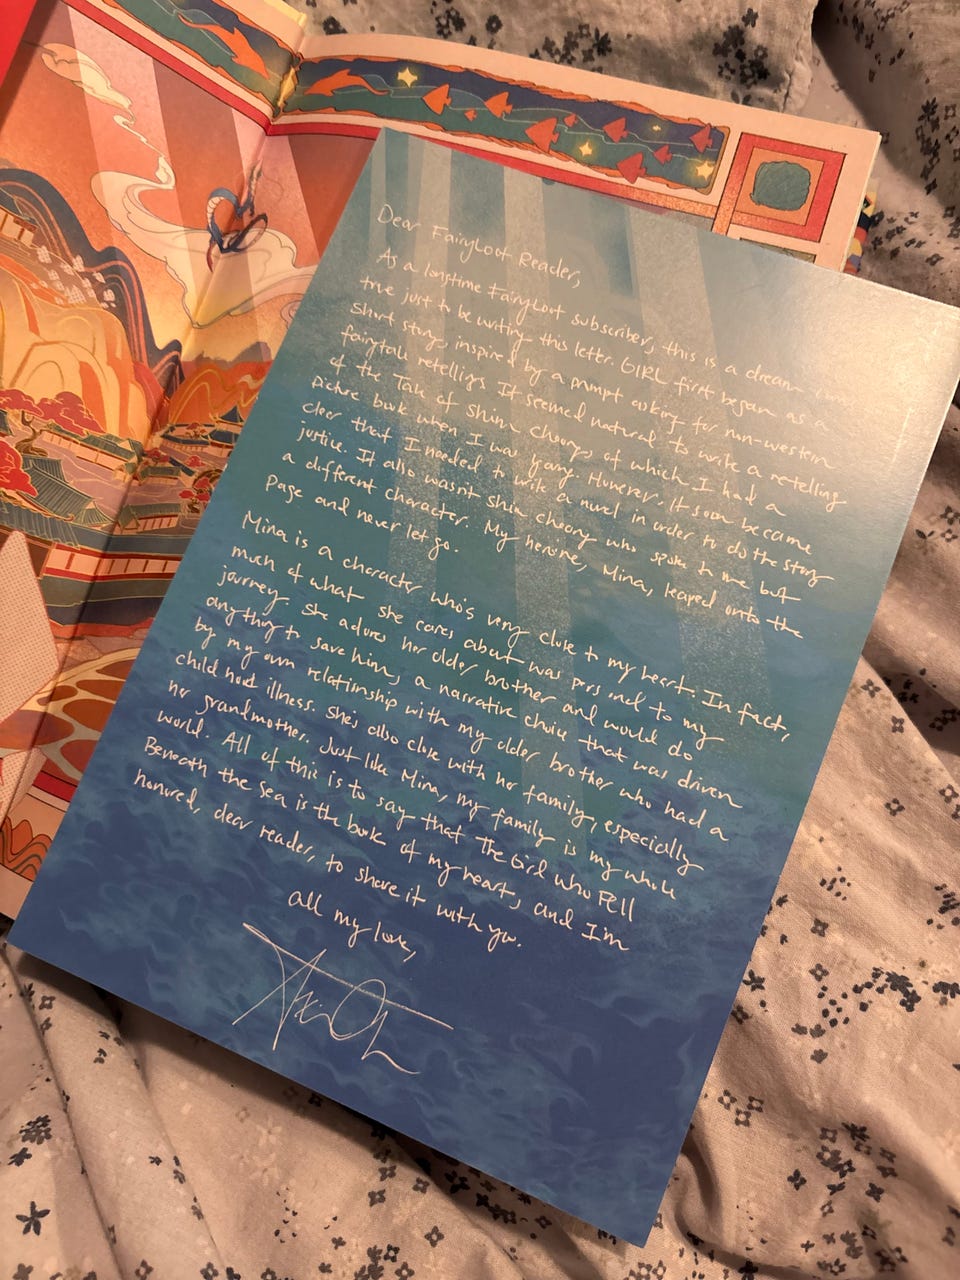 Dear FairyLoot Reader,
As a longtime FairyLoot subscriber, this is a dream come
true just to be writing this letter. GIRL first began as a
short story, inspired by a prompt asking for non-western
fairytale retellings. It seemed natural to write a retelling
of the Tale of Shim Cheong, of which I had a
picture book when I was young. However, it soon became
clear that I needed to write a novel in order to do the story
justice. It also wasn't Shim Cheong who spoke to me but
a different character. My heroine, Mina, leaped onto the
page and never let go.
Mina is a character who's very close to my heart. In fact,
much of what she cares about was personal to my
journey. She adores her older brother and would do
anything to save him, a narrative choice that was driven
by my own relationship with my older brother who had a
childhood illness. She's also close with her family, especially
her grandmother. Just like Mina, my family is my whole
world. All of this is to say that The Girl Who Fell
Beneath the Sea is the book of my heart, and I'm
honored, dear reader, to share it with you.
all my love,
Axie Oh